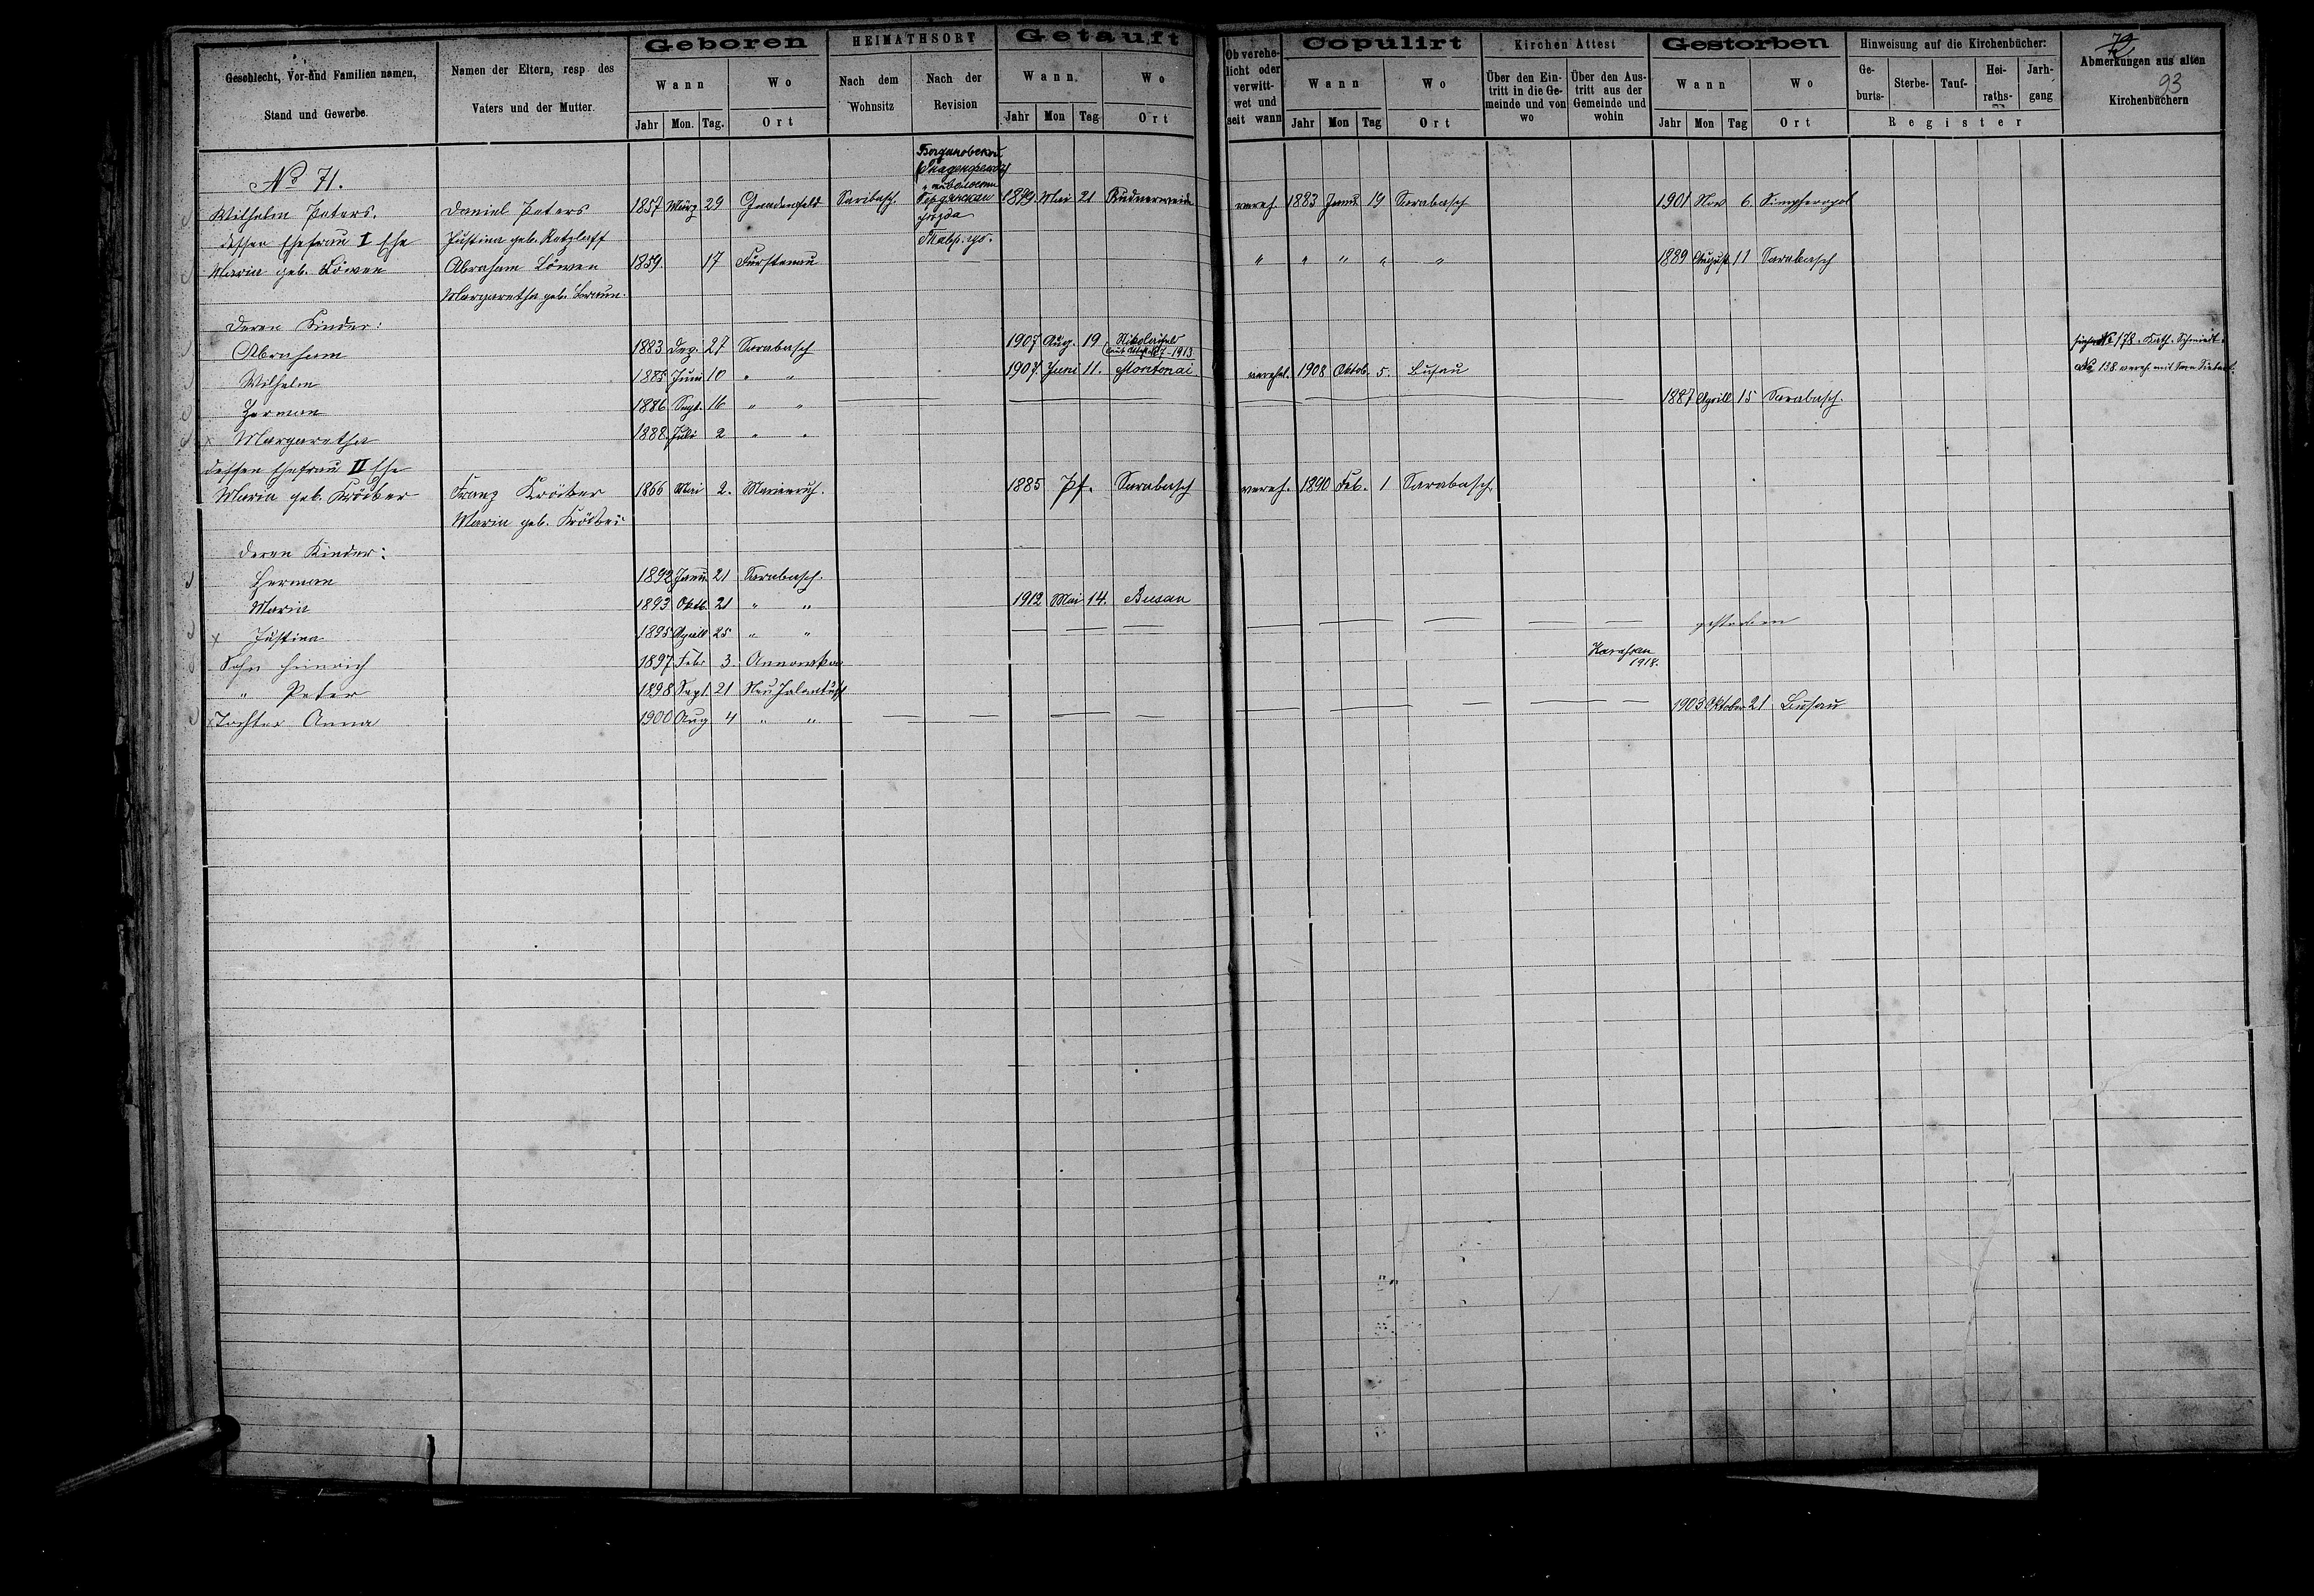 Geschlecht, Vor- und Familien namen,
Stand und Gewerbe.
Namen der Eltern, resp. des
Vaters und der Mutter.
Geboren
Wann
Wo
Jahr Mon. Tag. Ort
HEIMATHSORT
Nach dem Wohnsitz
Nach der Revision
Getauft
Wann.
Wo
Jahr Mon Tag Ort
Ob verehe-
licht oder
verwitt-
wet und
seit wann
Copulirt
Wann
Wo
Jahr Mon Tag Ort
Kirchen Attest
Über den Ein-
tritt in die Ge-
meinde und von
wo
Über den Aus-
tritt aus der
Gemeinde und
wohin
Gestorben
Wann
Wo
Jahr Mon Tag Ort
Hinweisung auf die Kirchenbücher:
Ge-
burts-
Sterbe-
Tauf-
Hei-
raths-
Jarh-
gang
Register
72
Abmerkungen aus alten
93
Kirchenbüchern
No 71.
Гнаденфельд
Wilhelm Peters. Daniel Peters 1857 März 29 Gnadenfeld Saribasch. 1879 Mai 21 Rudnerweide vereh. 1883 Janu. 19 Sarabasch 1901 Nov 6. Simpheropol
уезда
dessen Ehefrau I Ehe Justina geb. Ratzlaff Тавр. губ.
Maria geb. Löwen Abraham Löwen 1859. 17 Fürstenau " " " " " 1889 August 11 Sarabasch
Margaretha geb. Braun.
deren Kinder:
Abraham 1883 Dez. 27 Sarabasch 1907 Aug. 19 Nikolaifeld siehe No 178. Kath. Schmidt.
1913
Wilhelm 1885 Juni 10 " " 1907. Juni 11. verehel. 1908 Oktob. 5. Busau No 138 vereh. mit
Herman 1886 Sept. 16 " " 1887 Aprill 15 Sarabasch.
x Margaretha 1888. Juli 2 " "
dessen Ehefrau II Ehe
Maria geb. Kröker Franz Kröker 1866 Mai 2. Marienruh. 1885 Pf. Sarabasch vereh. 1890 Feb. 1 Sarabasch.
Maria geb.
deren Kinder:
Herman 1892 Janu. 21 Sarabasch.
Maria 1893 Oktb. 21 " " 1912 Mai 14. Busau
x Justina 1895 Aprill 25 " " gestorben
Sohn Heinrich 1897 Febr 3. Annowka Karassan
1918.
" Peter 1898 Sept 21 Neu
x Tochter Anna 1900 Aug 4 " " 1903 Oktober 21 Busau